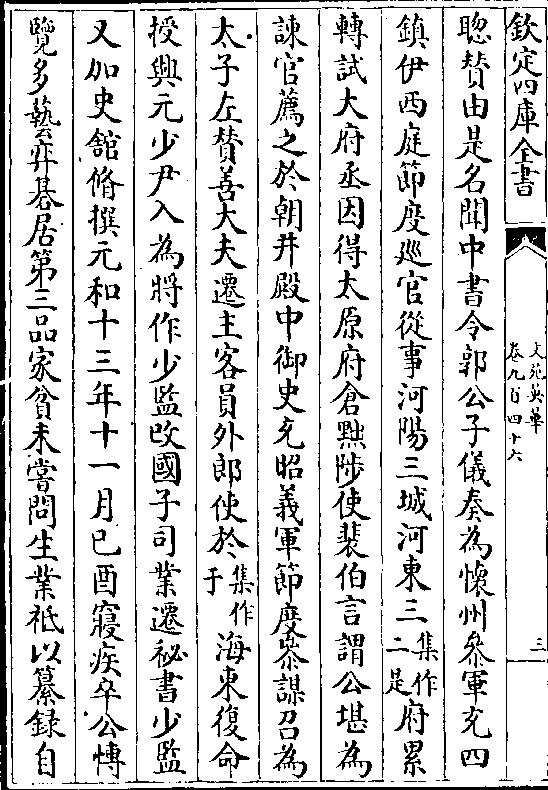 欽定四庫全書
文苑英華
卷九百四十六
三
聰贊由是名聞中書令郭公子儀奏為懷州叅軍充四
鎮伊西庭節度廵官從事河陽三城河東三集作二是府累
轉試大府丞因得太原府倉㸃陟使裴伯言謂公堪為
諫官薦之於朝并殿中御史充昭義軍節度叅謀召為
太子左賛善大夫遷主客員外郎使於集作于海東復命
授興元少尹入為將作少監改國子司業遷祕書少監
又加史舘脩撰元和十三年十一月已酉寢疾卒公愽
覽多藝弈碁居第三品家貧未嘗問生業祗以纂録自